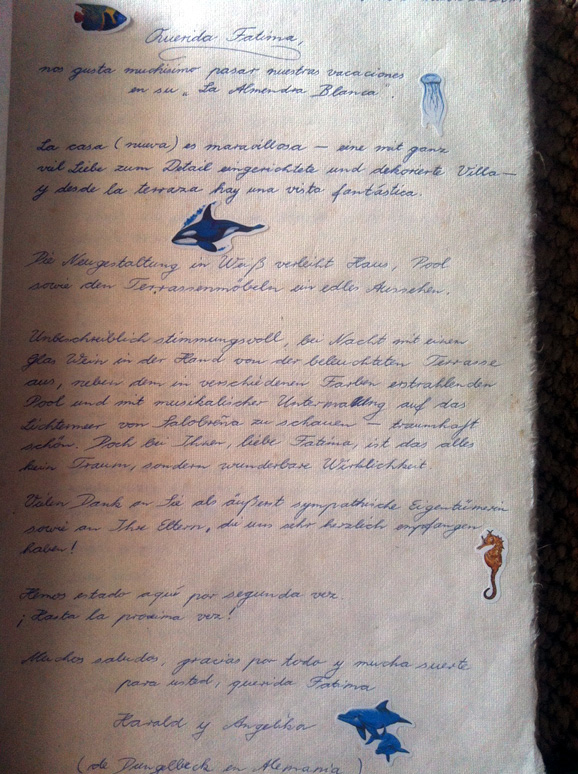 Querida Fatima,
nos gusta muchísimo pasar nuestras vacaciones
en su „La Almendra Blanca“.
La casa (nueva) es maravillosa – eine mit ganz
viel Liebe zum Detail eingerichtete und dekorierte Villa –
y desde la terraza hay una vista fantástica.
Die Neugestaltung in Weiß verleiht Haus, Pool
sowie den Terrassenmöbeln ein edles Aussehen.
Unbeschreiblich stimmungsvoll, bei Nacht mit einem
Glas Wein in der Hand von der beleuchteten Terrasse
aus, neben dem in verschiedenen Farben erstrahlenden
Pool und mit musikalischer Untermalung auf das
Lichtermeer von Salobreña zu schauen – traumhaft
schön. Doch bei Ihnen, liebe Fatima, ist das alles
kein Traum, sondern wunderbare Wirklichkeit.
Vielen Dank an Sie als äußerst sympathische Eigentümerin
sowie an Ihre Eltern, die uns sehr herzlich empfangen
haben!
Hemos estado aquí por segunda vez.
¡Hasta la proxima vez!
Muchos saludos, gracias por todo y mucha suerte
para usted, querida Fatima
Harald y Angelika
(de Dungelbeck en Alemania)